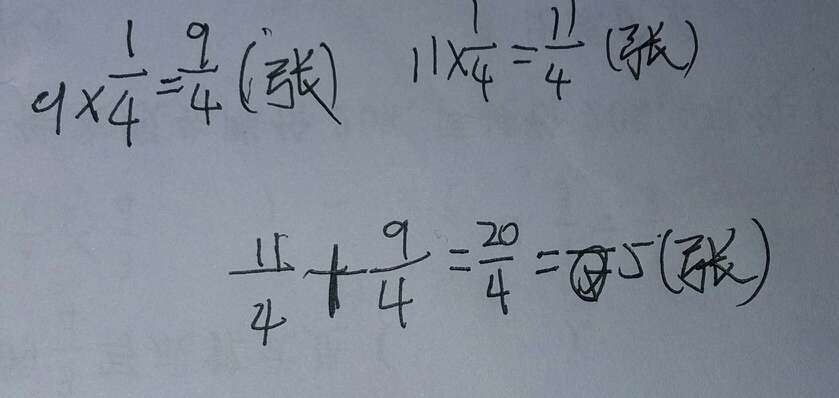 9×1/4=9/4(张) 11×1/4=11/4(张)
11/4+9/4=20/4=5(张)